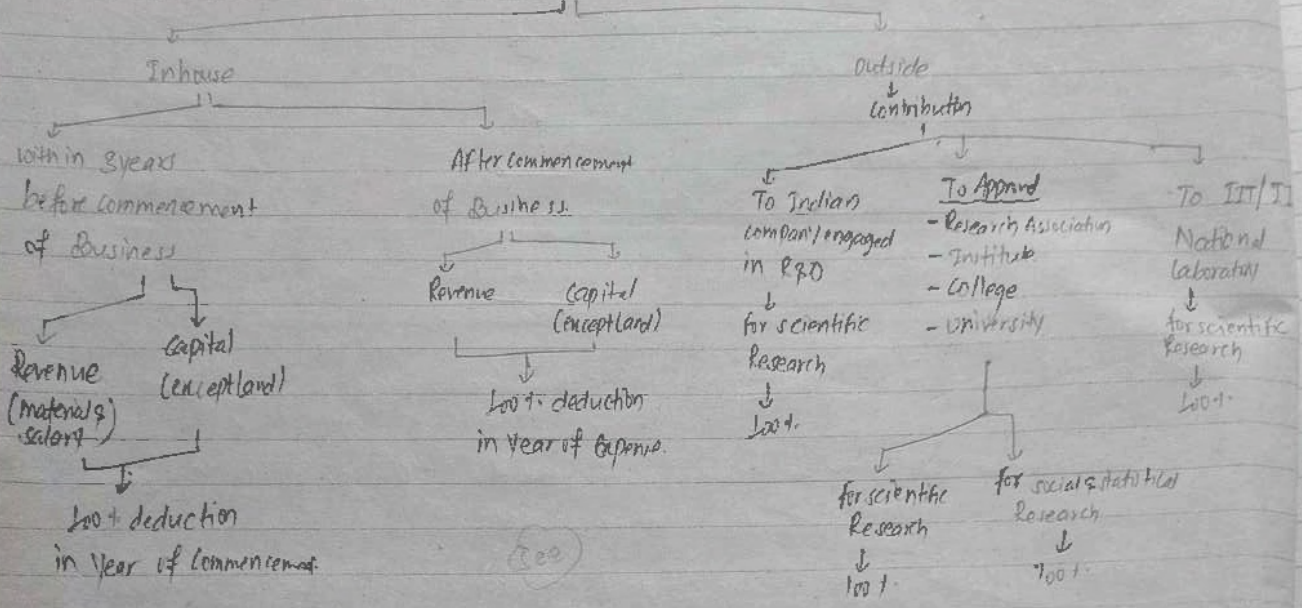 Inhouse
within 3years
before commencement
of Business
Revenue
(material &
salary)
Capital
(exceptland)
100% deduction
in Year of Commencement.
After commencement
of Business.
Revenue
Capital
(exceptland)
100% deduction
in Year of Expense.
Outside
Contribution
To Indian
company engaged
in R&D
for scientific
Research
100%.
To Approved
- Research Association
- Institute
- College
- University
for scientific
Research
100%.
for social & statistical
Research
100%.
To IIT/
National
Laboratory
for scientific
Research
100%.